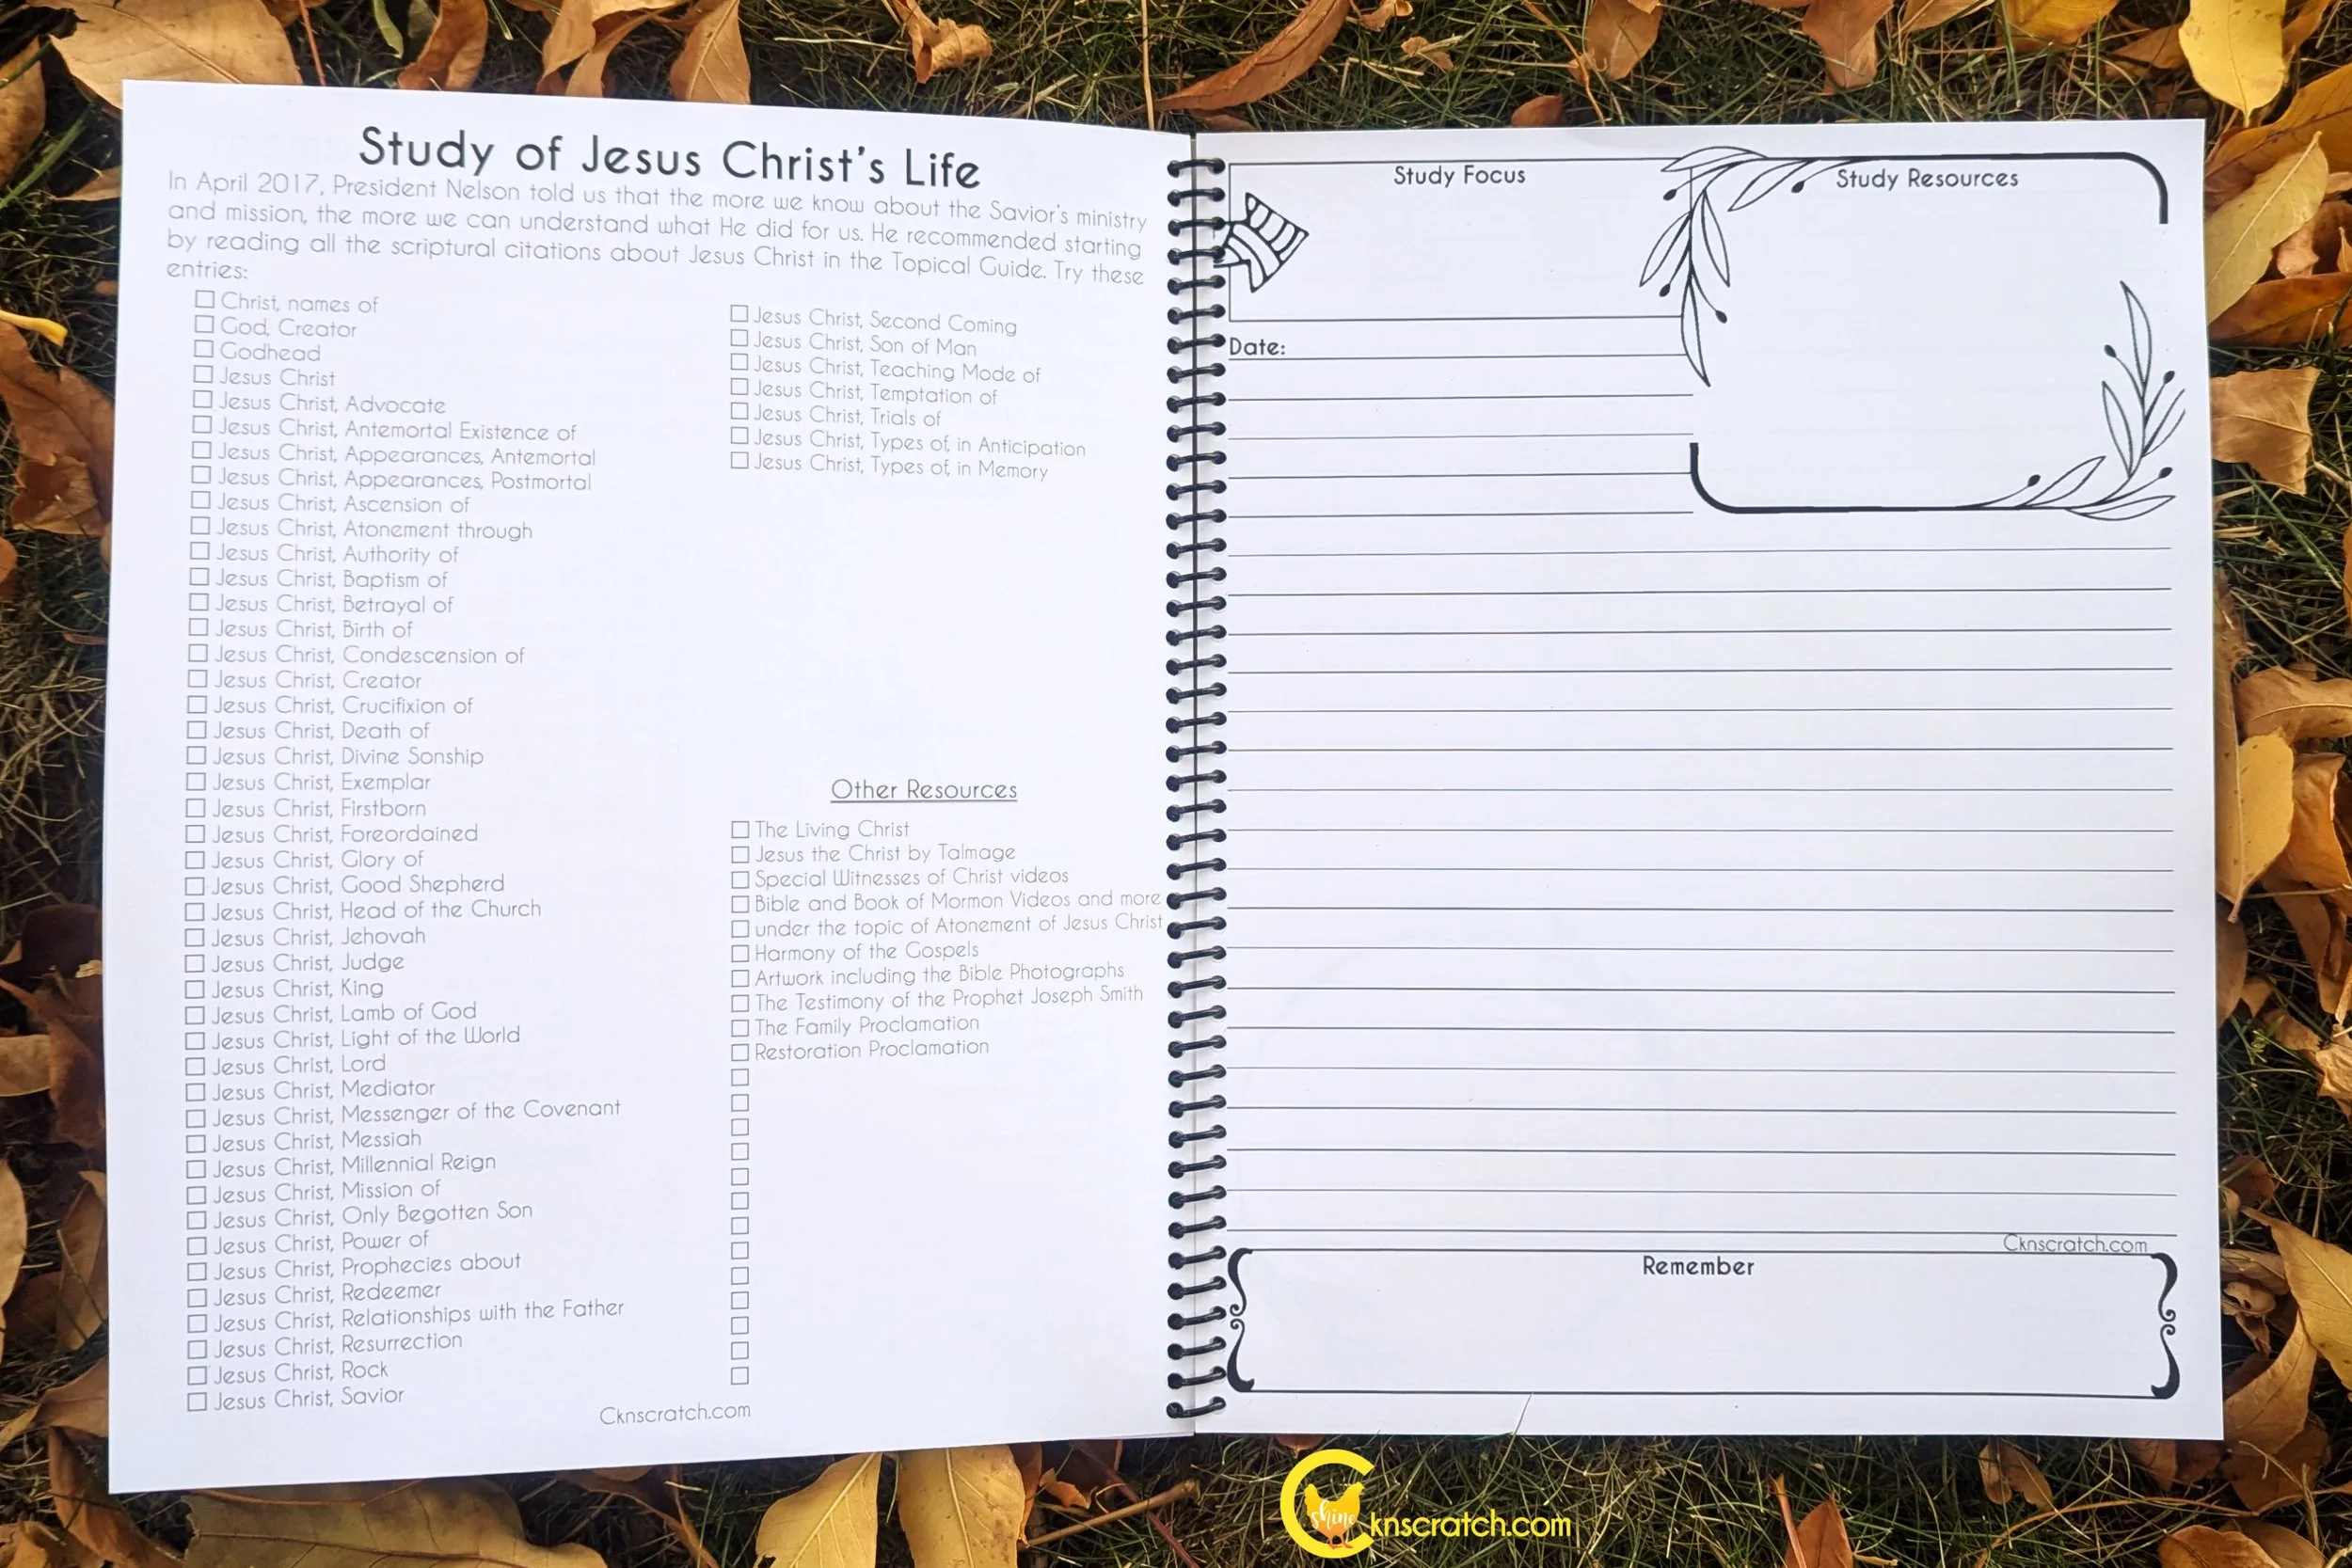 Study of Jesus Christ's Life
In April 2017, President Nelson told us that the more we know about the Savior's ministry
and mission, the more we can understand what He did for us. He recommended starting
by reading all the scriptural citations about Jesus Christ in the Topical Guide. Try these
entries:
Christ, names of
God, Creator
Godhead
Jesus Christ
Jesus Christ, Advocate
Jesus Christ, Antemortal Existence of
Jesus Christ, Appearances, Antemortal
Jesus Christ, Appearances, Postmortal
Jesus Christ, Ascension of
Jesus Christ, Atonement through
Jesus Christ, Authority of
Jesus Christ, Baptism of
Jesus Christ, Betrayal of
Jesus Christ, Birth of
Jesus Christ, Condescension of
Jesus Christ, Creator
Jesus Christ, Crucifixion of
Jesus Christ, Death of
Jesus Christ, Divine Sonship
Jesus Christ, Exemplar
Jesus Christ, Firstborn
Jesus Christ, Foreordained
Jesus Christ, Glory of
Jesus Christ, Good Shepherd
Jesus Christ, Head of the Church
Jesus Christ, Jehovah
Jesus Christ, Judge
Jesus Christ, King
Jesus Christ, Lamb of God
Jesus Christ, Light of the World
Jesus Christ, Lord
Jesus Christ, Mediator
Jesus Christ, Messenger of the Covenant
Jesus Christ, Messiah
Jesus Christ, Millennial Reign
Jesus Christ, Mission of
Jesus Christ, Only Begotten Son
Jesus Christ, Power of
Jesus Christ, Prophecies about
Jesus Christ, Redeemer
Jesus Christ, Relationships with the Father
Jesus Christ, Resurrection
Jesus Christ, Rock
Jesus Christ, Savior
Jesus Christ, Second Coming
Jesus Christ, Son of Man
Jesus Christ, Teaching Mode of
Jesus Christ, Temptation of
Jesus Christ, Trials of
Jesus Christ, Types of, in Anticipation
Jesus Christ, Types of, in Memory
Other Resources
The Living Christ
Jesus the Christ by Talmage
Special Witnesses of Christ videos
Bible and Book of Mormon Videos and more
under the topic of Atonement of Jesus Christ
Harmony of the Gospels
Artwork including the Bible Photographs
The Testimony of the Prophet Joseph Smith
The Family Proclamation
Restoration Proclamation
Cknscratch.com
Study Focus
Study Resources
Date:
Cknscratch.com
Remember
shine
Cknscratch.com